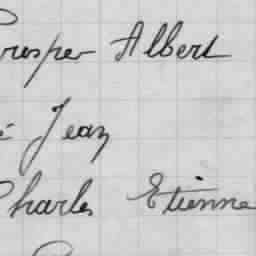 Prosper Albert
é Jean
Charles Etienne